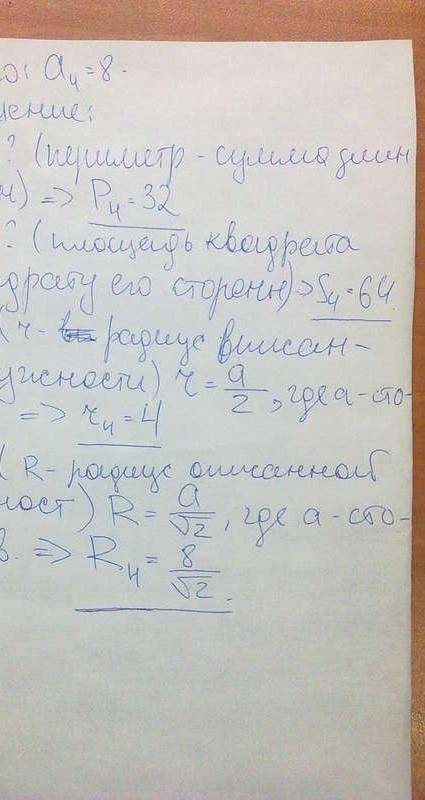 но: a₄=8.
шение:
? (периметр - сумма длин
н) => P₄=32
? (площадь квадрата
драту его стороны)=>S₄=64.
(r - радиус вписан-
ужности) r=a/2, где a-сто-
=> r₄=4
( R- радиус описанной
ност) R=a/√2, где a-сто-
в. => R₄=8/√2.